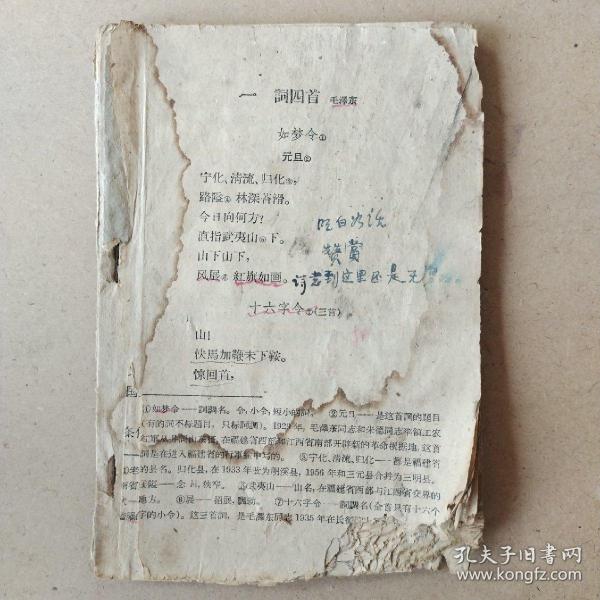 一 詞四首 毛澤东
如梦令①
元旦②
宁化、清流、归化③,
路隘④ 林深苔滑。
今日向何方?
直指武夷山⑤下。
山下山下,
风展⑥ 紅旗如画。
赞賞
到这里还是
十六字令⑦(三首)
山!
快馬加鞭未下鞍。
惊回首,
国
①如梦令——詞調名。令,小令,短小的詞。 ②元旦——是这首詞的題目
(有的詞不标題目,只标詞調)。1929年,毛澤东同志和朱德同志率領工农
紅軍 在福建省西部和江西省南部开辟新的革命根据地,这首
詞是在进入福建省的行軍 中写的。 ③宁化、清流、归化——都是福建省
的县名。归化县,在1933年改为明溪县,1956年和三元县合并为三明县。
④隘——念 狹窄。 ⑤武夷山——山名,在福建省西部与江西省交界的
地方。 ⑥展——招展,飄动。 ⑦十六字令——詞調名(全首只有十六个
字的小令)。这三首詞,是毛澤东同志1935年在长征
孔夫子旧书网
www.kongfz.com